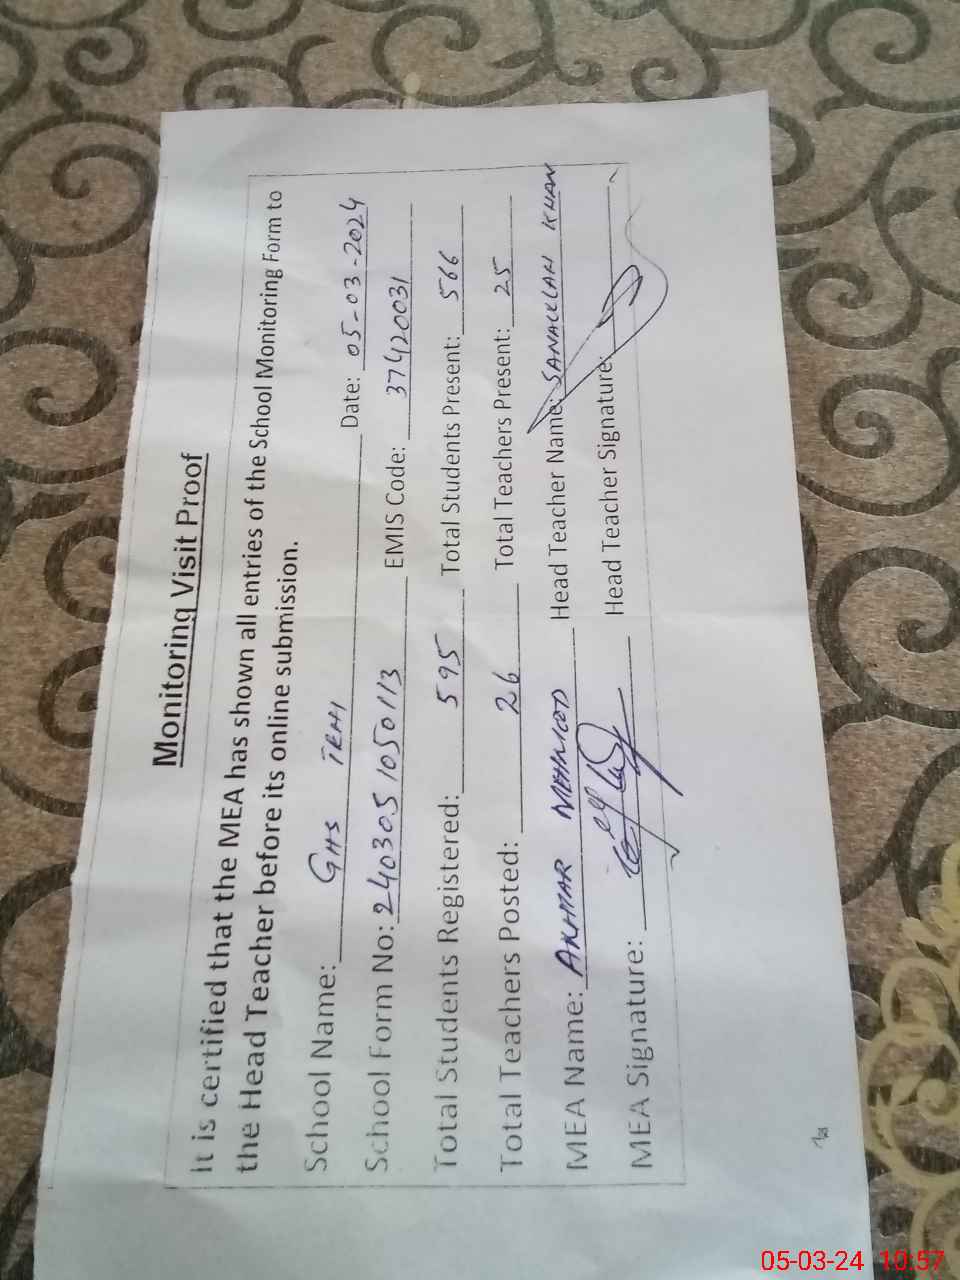 Monitoring Visit Proof
It is certified that the MEA has shown all entries of the School Monitoring Form to
the Head Teacher before its online submission.
School Name: GHS IRHI Date: 05-03-2024
School Form No: 2403051050113 EMIS Code: 37420031
Total Students Registered: 595 Total Students Present: 566
Total Teachers Posted: 26 Total Teachers Present: 25
MEA Name: AKHTAR MEHMOOD Head Teacher Name: SANAULLAH KHAN
MEA Signature: Head Teacher Signature:
05-03-24 10:57